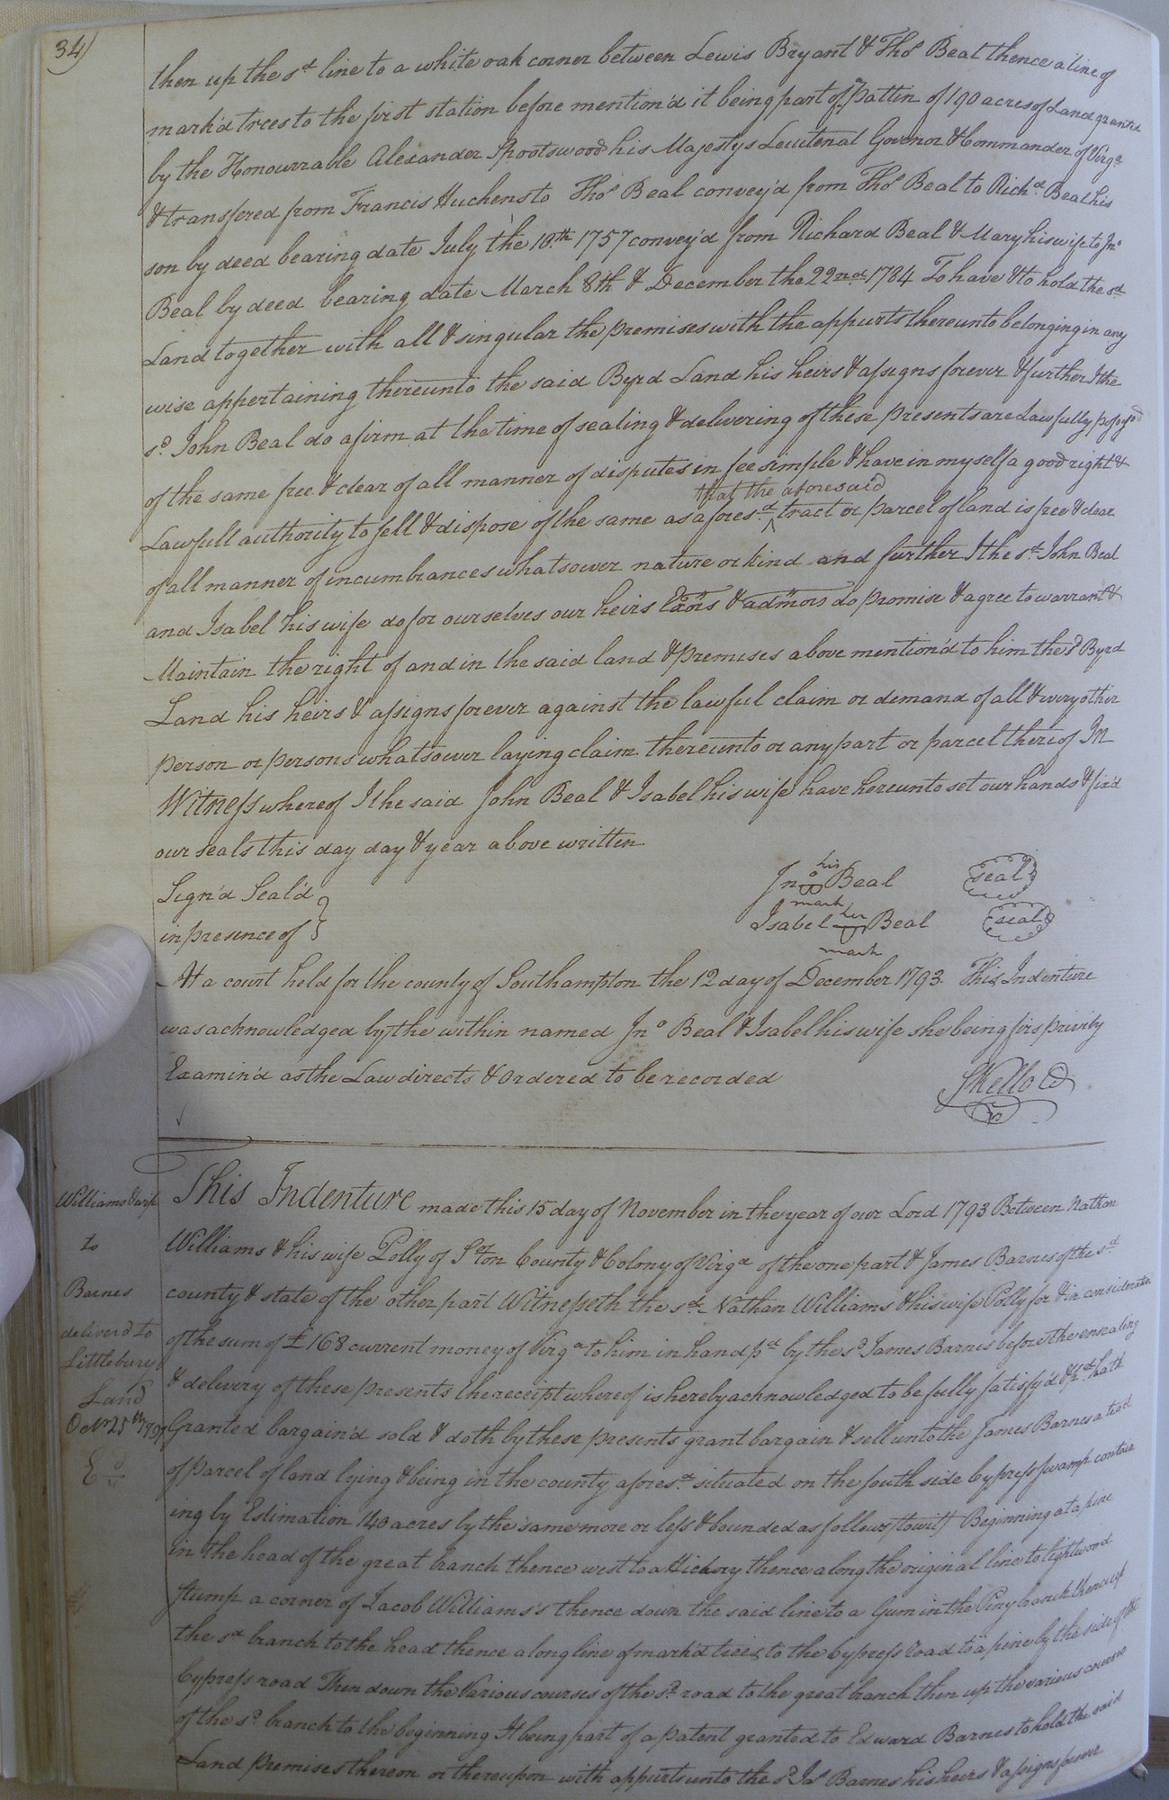 34)
then up the sd line to a white oak corner between Lewis Bryant & Thos Beal thence a line of
mark'd trees to the first station before mention'd it being part of Pattin of 190 acres of Land granted
by the Honourrable Alexander Spootswood his Majestys Leutenal Govenor & Commander of Virga
& transfered from Francis Huchens to Thos Beal convey'd from Thos Beal to Richd Beal his
son by deed bearing date July the 18th 1757 convey'd from Richard Beal & Mary his wife to Jno
Beal by deed bearing date March 8th & December the 22nd 1784 To have & to hold the sd
Land together with all & singular the premises with the appurts thereunto belonging in any
wise appertaining thereunto the said Byrd Land his heirs & assigns forever & further I the
sd John Beal do afirm at the time of sealing & delivering of these presents are Lawfully
of the same free & clear of all manner of disputes in fee simple & have in myself a good right &
that the aforesaid
Lawfull authority to sell & dispose of the same as aforesd tract or parcel of land is free & clear
of all manner of incumbrances whatsower nature or kind and further I the sd John Beal
and Isabel his wife do for ourselves our heirs Exors & admors do promise & agree to warrant &
Maintain the right of and in the said land & premises above mention'd to him the sd Byrd
Land his heirs & assigns forever against the lawful claim or demand of all & every other
person or persons whatsower laying claim thereunto or any part or parcel there of In
Witness whereof I the said John Beal & Isabel his wife have hereunto set our hands & fix'd
our seals this day day & year above written
Sign'd Seal'd
in presence of
Jno his mark Beal seal
Isabel her mark Beal seal
At a court held for the county of Southampton the 12 day of December 1793 This Indenture
was acknowledged by the within named Jno Beal & Isabel his wife she being firs privily
Examin'd as the Law directs & Ordered to be recorded
SKello
Williams & wife
to
Barnes
deliver'd to
Littlebury
Land
Octr 25th
This Indenture made this 15 day of November in the year of our Lord 1793 Between Nathan
Williams & his wife Polly of S'ton County & Colony of Virga of the one part & James Barnes of the sd
county & state of the other part Witnesseth the sd Nathan Williams & his wife Polly for & in consideration
of the sum of £168 current money of Virga to him in hand pd by the sd James Barnes before the ensealing
& delivery of these presents the receipt whereof is hereby acknowledged to be fully satisfy'd & pd hath
Granted bargain'd sold & doth by these presents grant bargain & sell unto the James Barnes a tract
of parcel of land lying & being in the county aforesd situated on the south side Cypress swamp contain
ing by Estimation 140 acres by the same more or less & bounded as follows (towit) Beginning at a pine
in the head of the great branch thence west to a Hickory thence along the original line to lightwood
stump a corner of Jacob Williams's thence down the said line to a Gum in the Piny branch thence up
the sd branch to the head thence along line of mark'd trees to the Cypress road to a pine by the side of the
Cypress road Then down the Various courses of the sd road to the great branch then up the various courses
of the sd branch to the beginning It being part of a patent granted to Edward Barnes to hold the said
Land premises thereon or thereupon with appurts unto the sd Jas Barnes his heirs & assigns forever